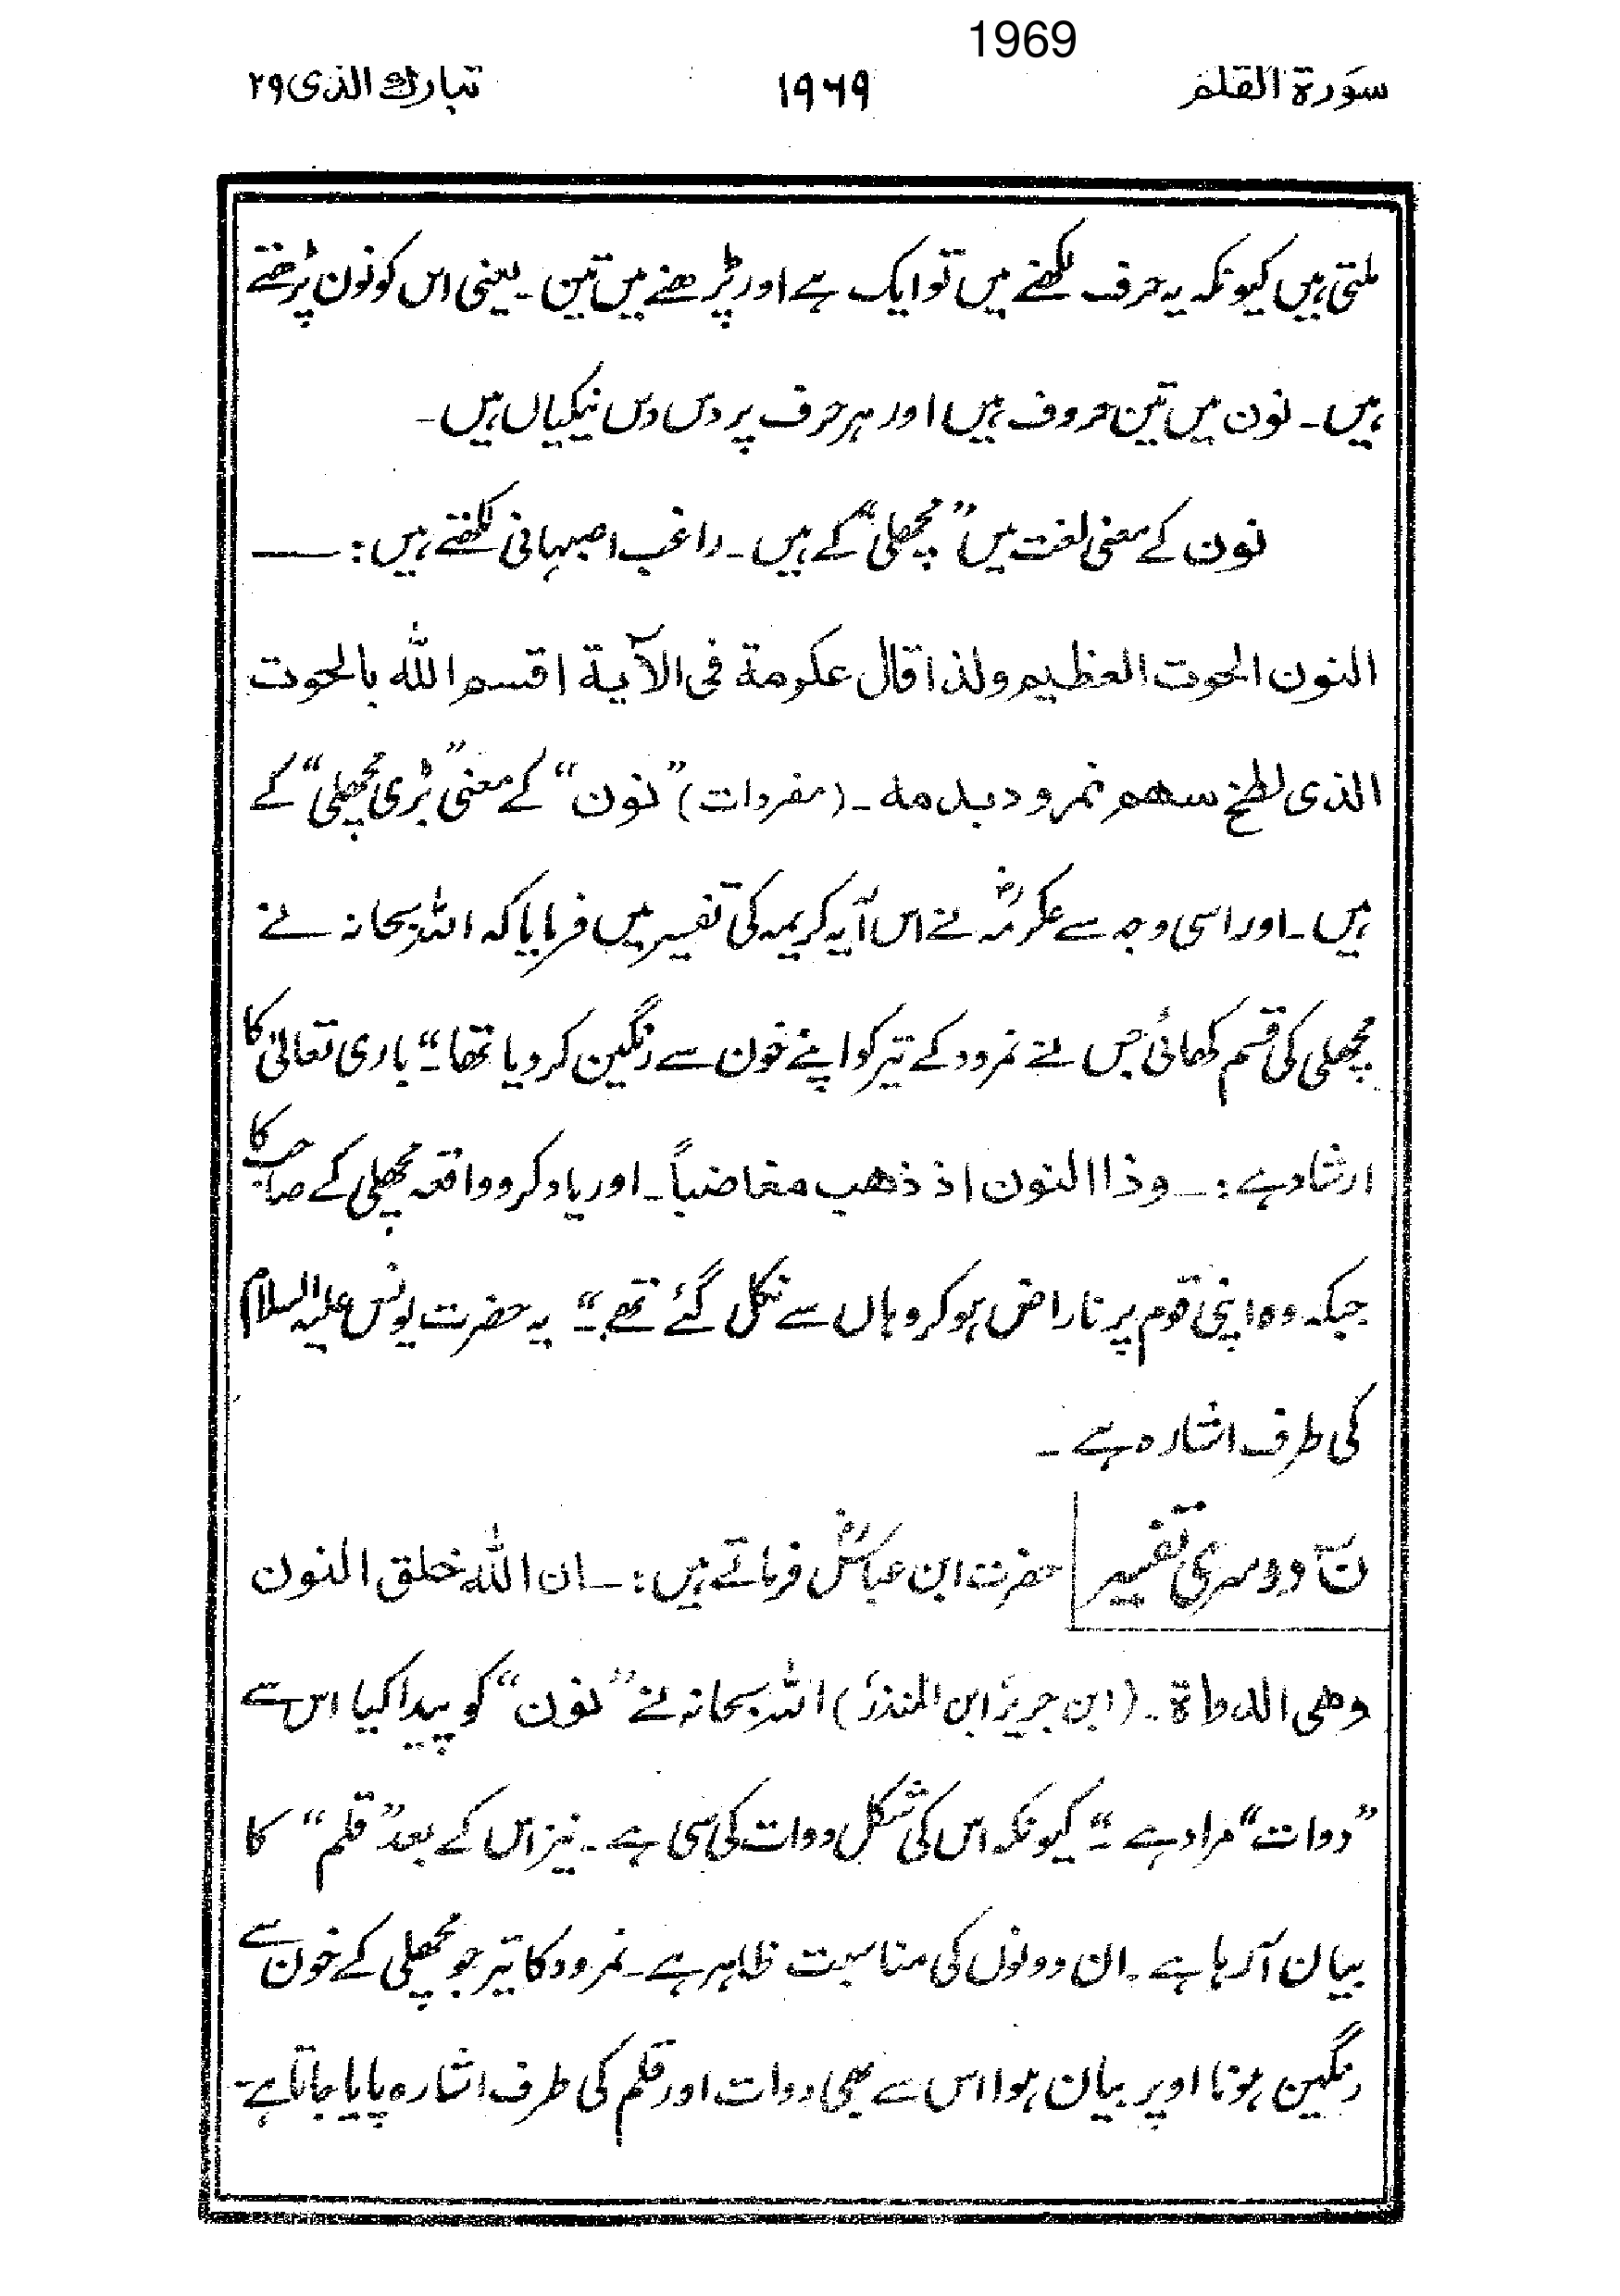 1969
سورة القلم ۱۹۶۹ تبارك الذی ۲۹
ملتی ہیں کیونکہ یہ حرف لکھنے میں تو ایک ہے اور پڑھنے میں تین ۔ یعنی اس کو نون پڑھتے
ہیں ۔ نون میں تین حروف ہیں اور ہر حرف پر دس دس نیکیاں ہیں ۔
نون کے معنی لغت میں ”مچھلی“ کے ہیں ۔ راغب اصبہانی لکھتے ہیں : ــــ
النون الحوت العظيم ولذا قال عكرمة فى الآية اقسم الله بالحوت
الذى لطخ سهم نمرود بدمه ۔ (مفردات) ”نون“ کے معنی ”بڑی مچھلی“ کے
ہیں ۔ اور اسی وجہ سے عکرمہؓ نے اس آیہ کریمہ کی تفسیر میں فرمایا کہ اللہ سبحانہ نے
مچھلی کی قسم کھائی جس نے نمرود کے تیر کو اپنے خون سے رنگین کر دیا تھا ۔“ باری تعالیٰ کا
ارشاد ہے : ۔ وذا النون اذ ذهب مغاضباً ۔ اور یاد کرو واقعہ مچھلی کے صاحب کا
جبکہ وہ اپنی قوم پر ناراض ہو کر وہاں سے نکل گئے تھے ۔“ یہ حضرت یونس علیہ السلام
کی طرف اشارہ ہے ۔
نٓ دوسری تفسیر حضرت ابن عباسؓ فرماتے ہیں : ۔ ان الله خلق النون
وهى الدواة ۔ (ابن جریرؒ ابن المنذرؒ) اللہ سبحانہ نے ”نون“ کو پیدا کیا اس سے
”دوات“ مراد ہے ۔“ کیونکہ اس کی شکل دوات کی سی ہے ۔ نیز اس کے بعد ”قلم“ کا
بیان آ رہا ہے ۔ ان دونوں کی مناسبت ظاہر ہے ۔ نمرود کا تیر جو مچھلی کے خون سے
رنگین ہونا اوپر بیان ہوا اس سے بھی دوات اور قلم کی طرف اشارہ پایا جاتا ہے ۔